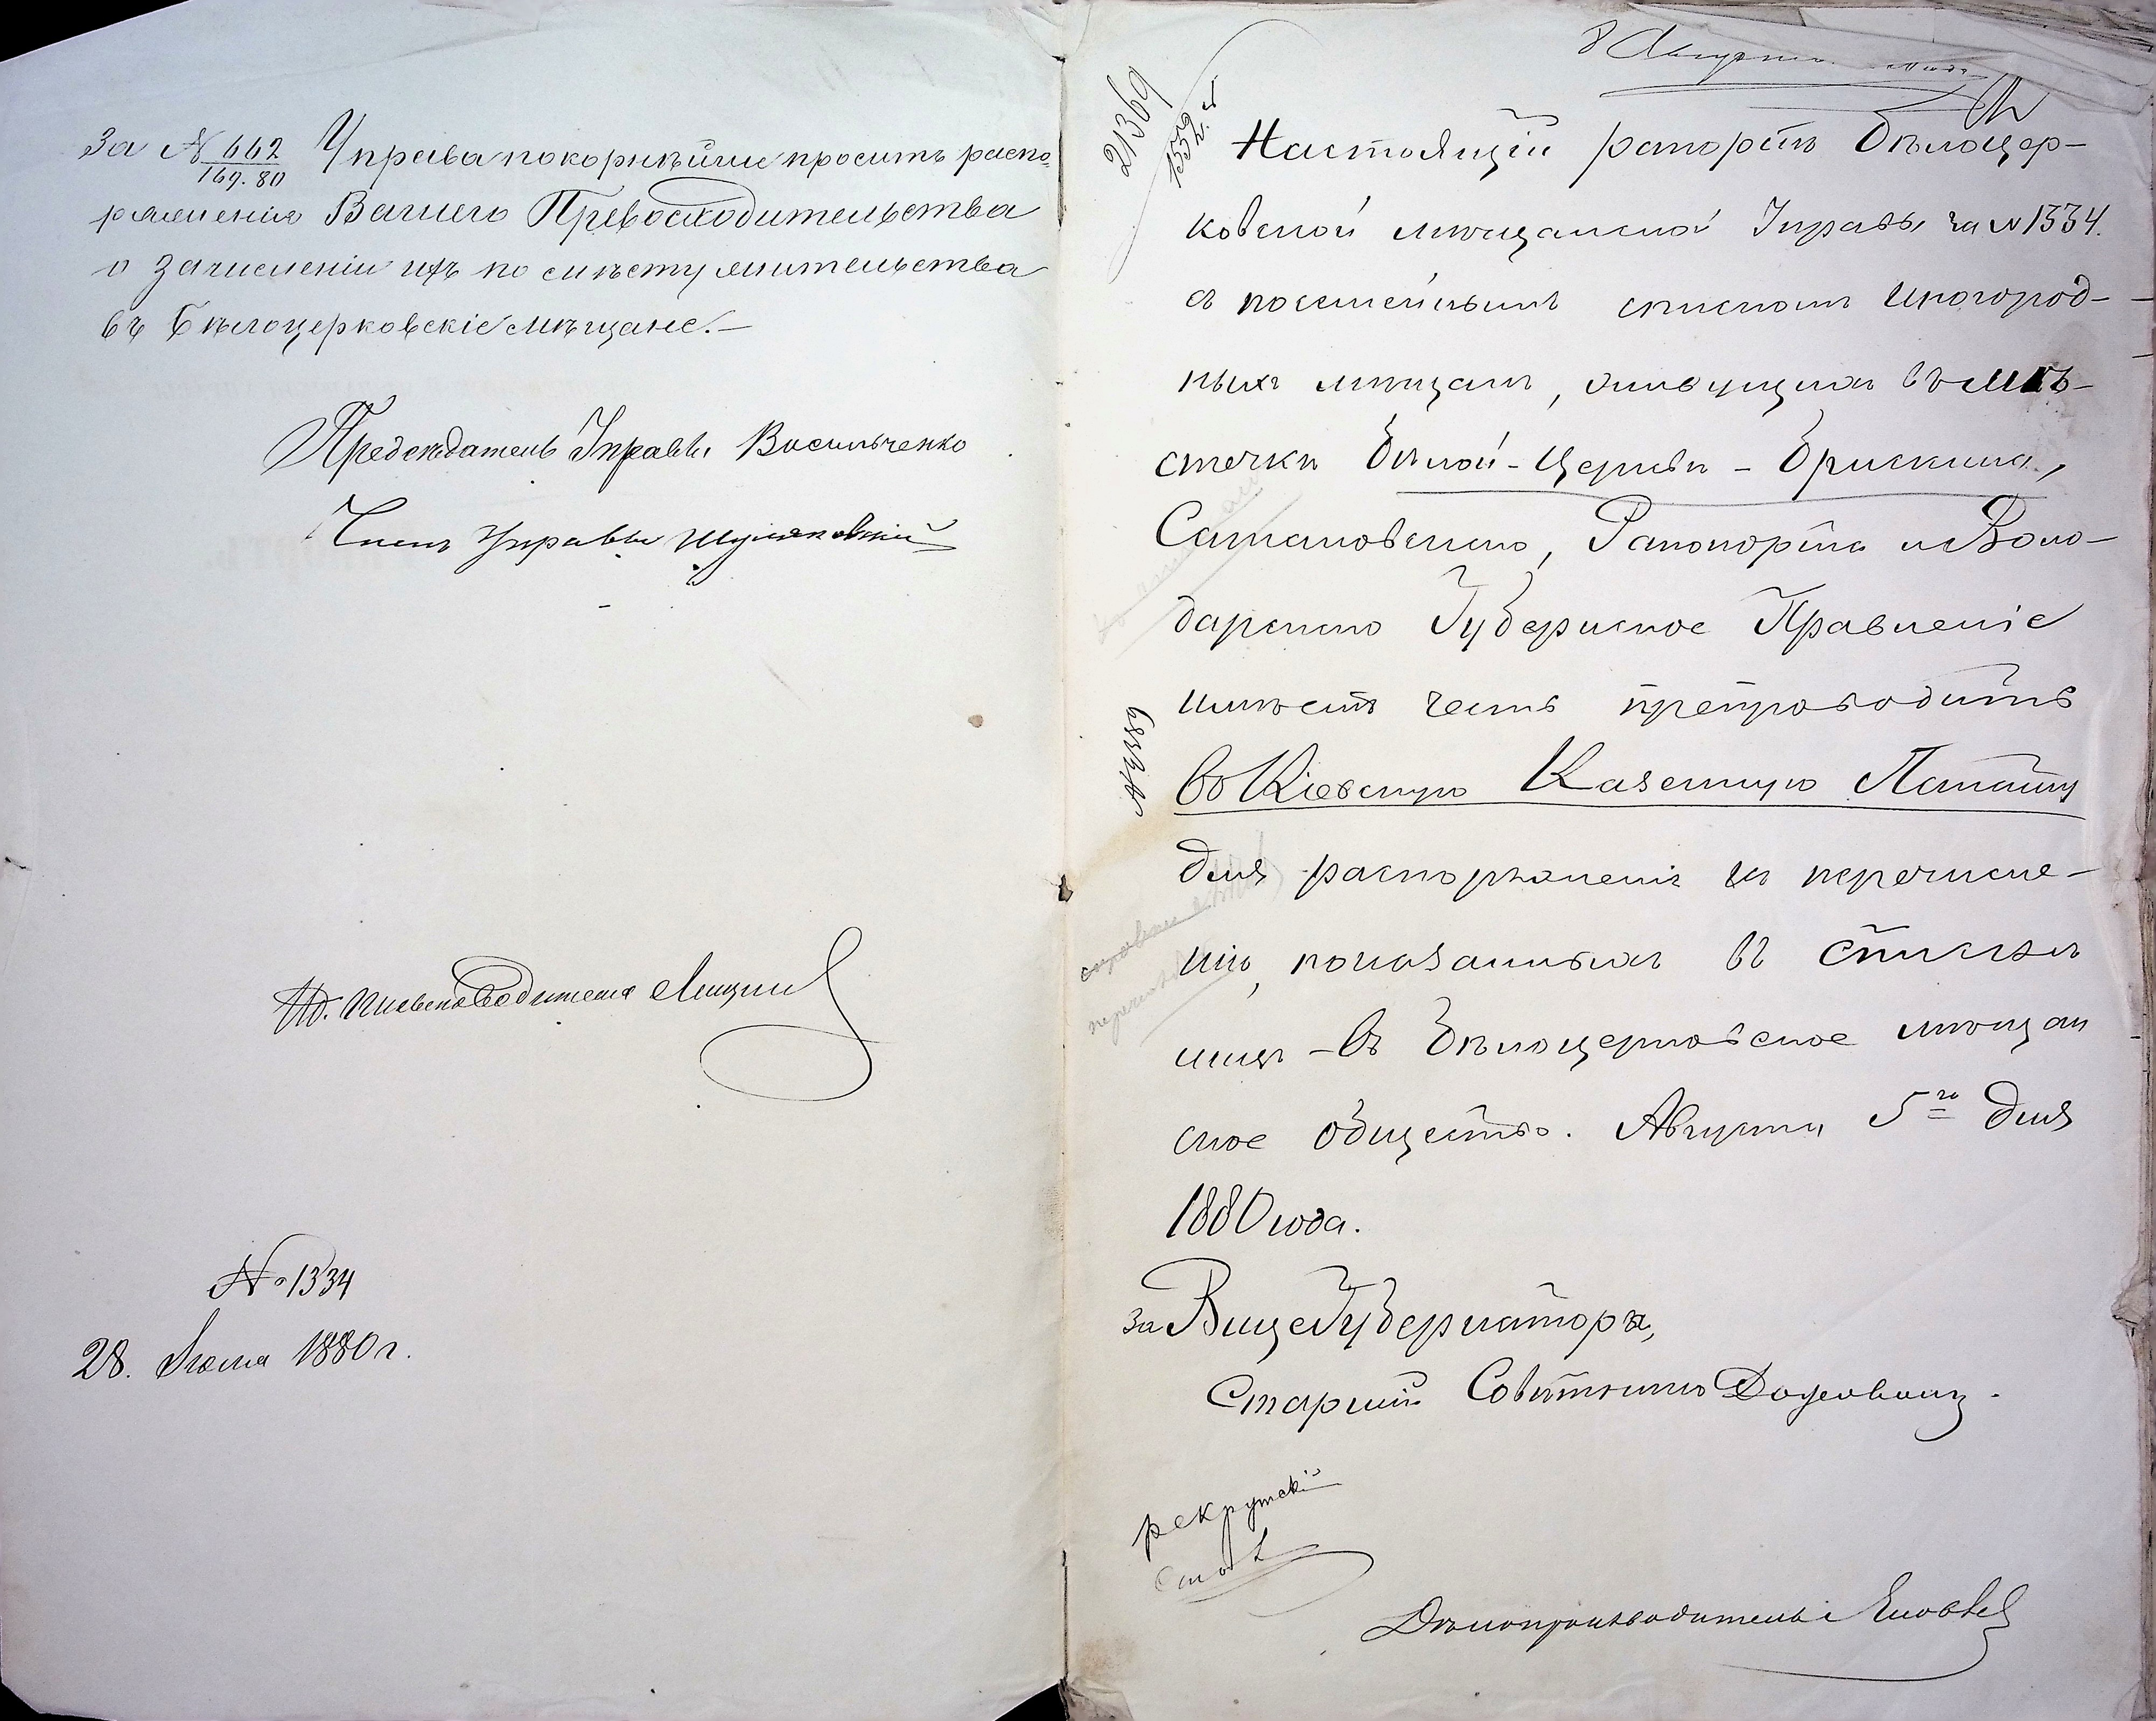 За № 662/169.80 Управа покорнѣйше проситъ распо-
ряженія Вашего Превосходительства
о зачисленіи ихъ по мѣсту жительства
въ Бѣлоцерковскіе мѣщане.—
Предсѣдатель Управы Васильченко
Членъ Управы
Ид. Письмоводителя
№ 1334
28. Іюля 1880 г.
8 Августа
21369
Настоящій рапортъ Бѣлоцер-
ковской мѣщанской Управы за № 1334.
съ посемейнымъ спискомъ иногород-
ныхъ мѣщанъ, живущихъ въ мѣ-
стечкѣ Бѣлой-Церкви – Брискина,
Сатановскаго, Рапопорта и Воло-
дарскаго Губернское Правленіе
имѣетъ честь препроводить
въ Кіевскую Казенную Палату
для распоряженія къ перечисле-
нію, показанныхъ въ спискѣ
лицъ – въ Бѣлоцерковское мѣщан
ское общество. Августа 5го дня
1880 года.
за Вице Губернатора,
Старшій Совѣтникъ
рекрутскій
столъ
Дѣлопроизводитель